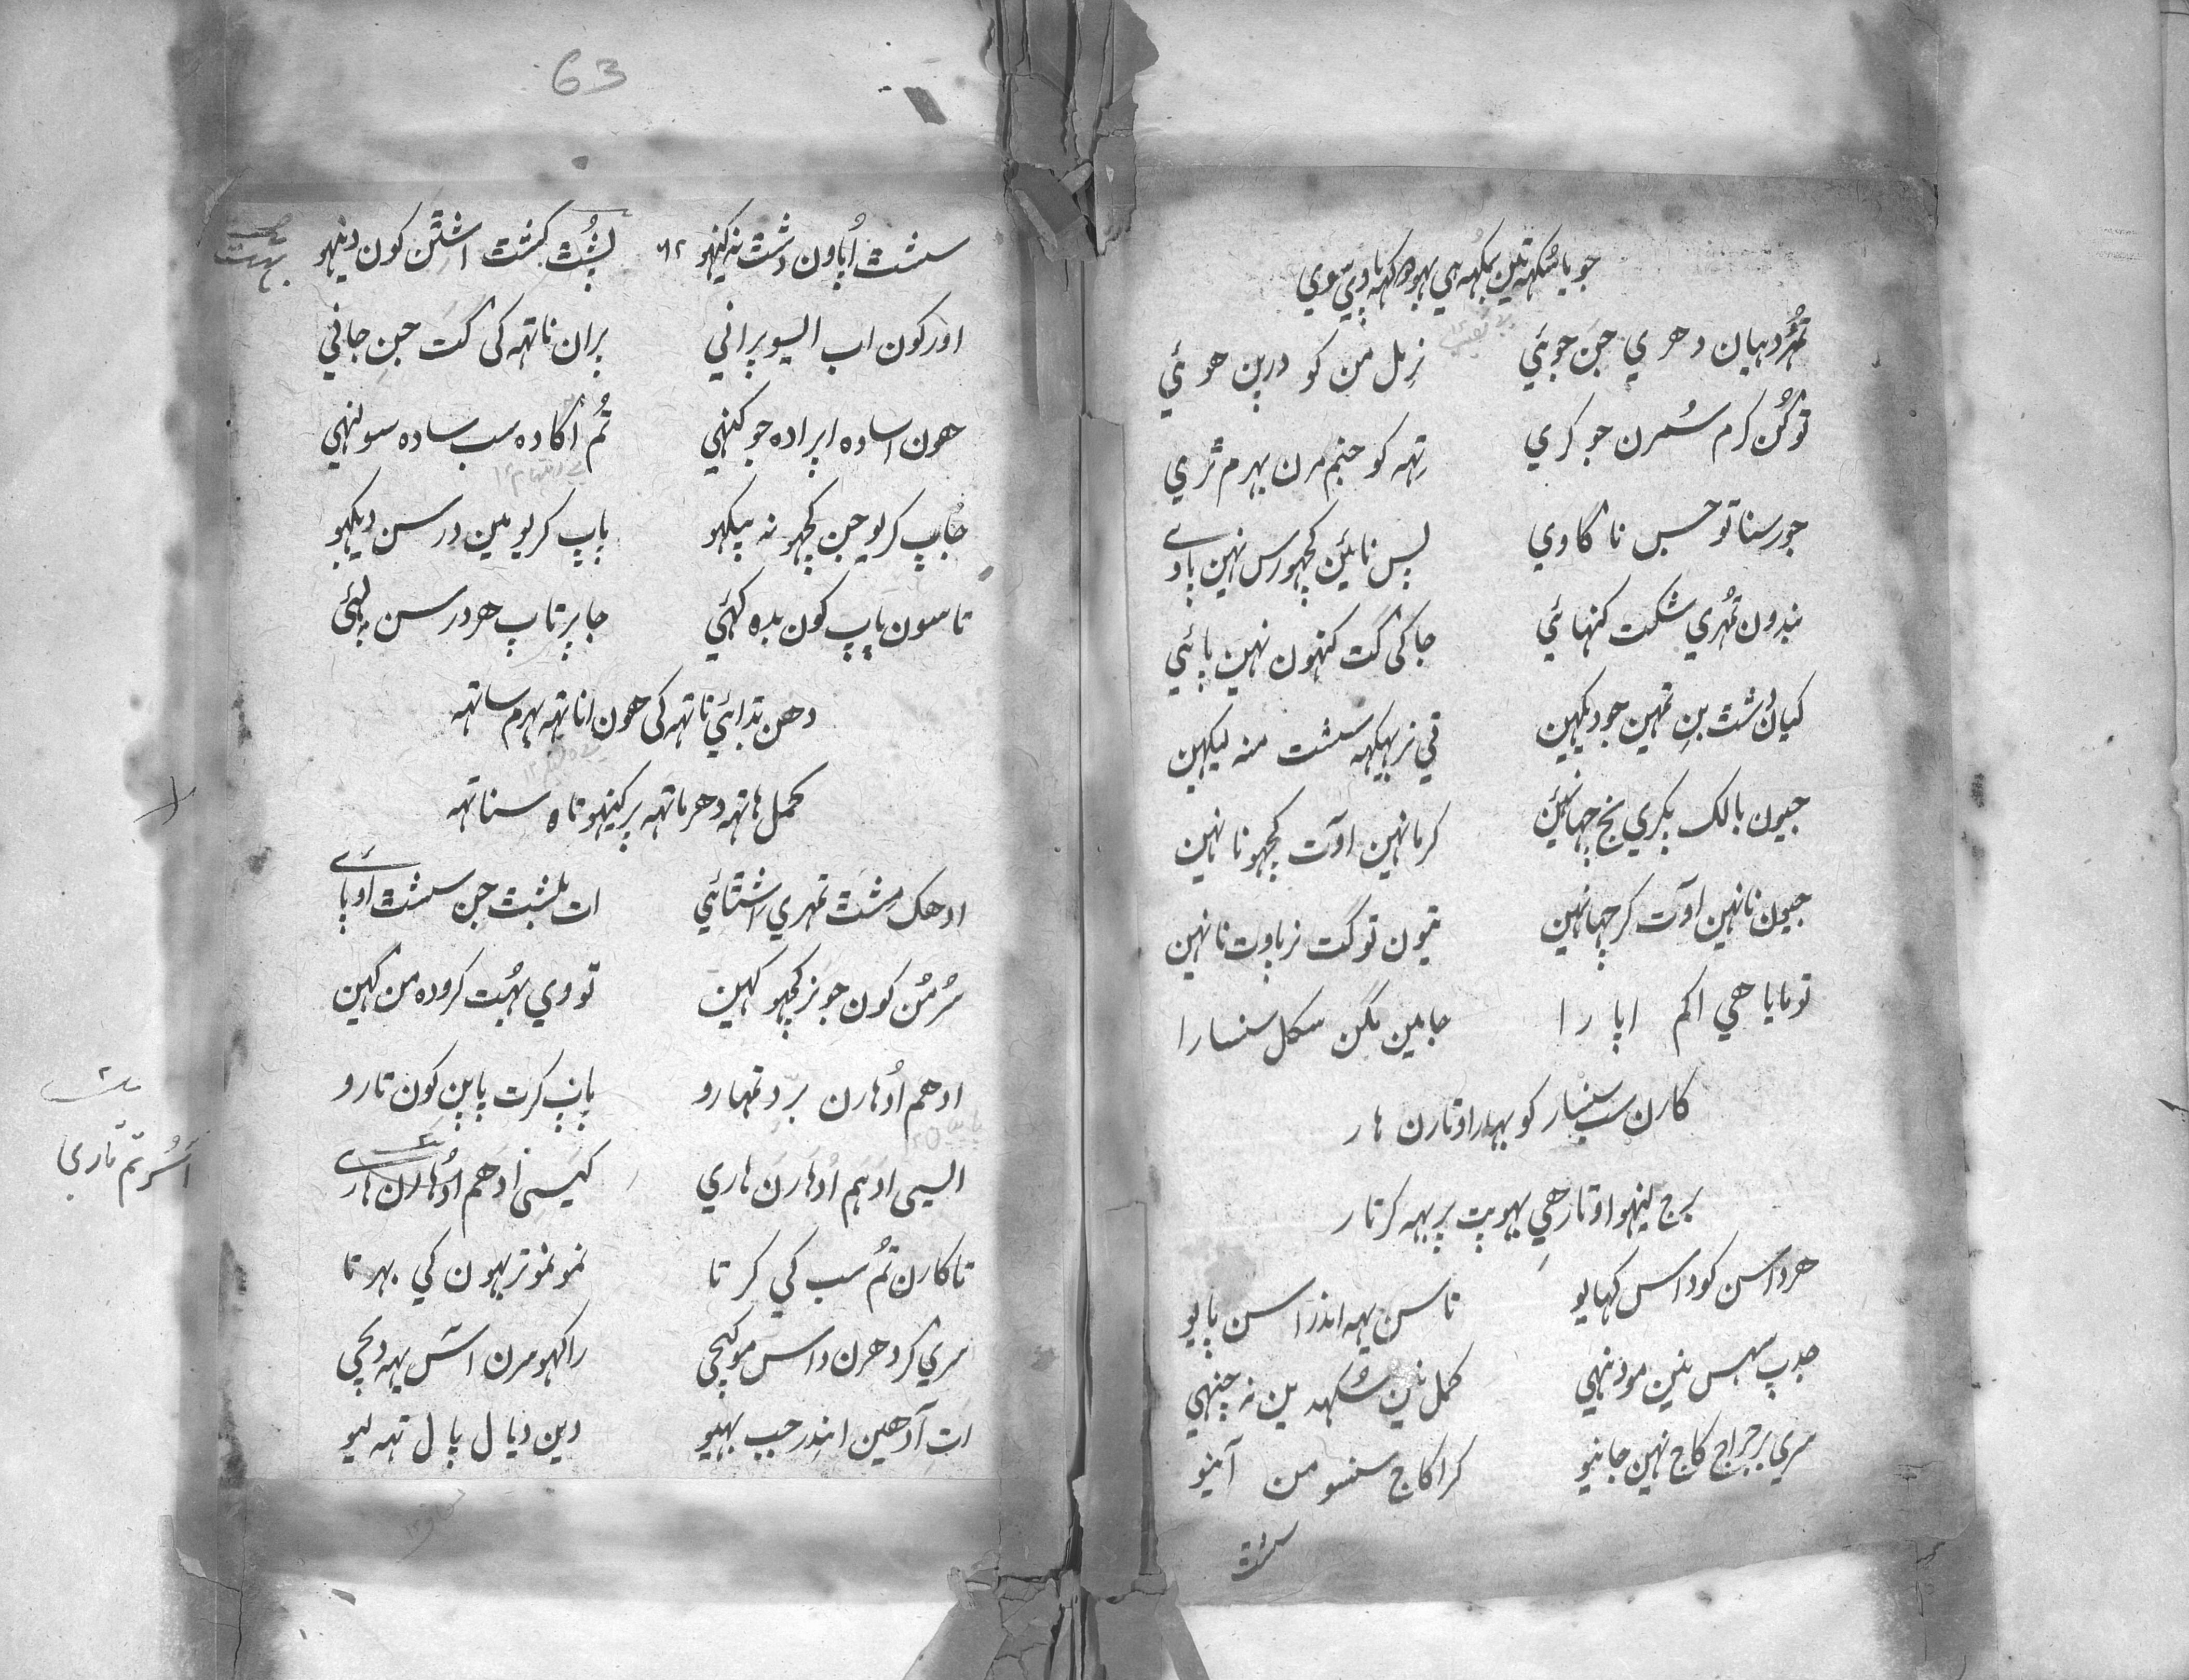 63
جو یا مُکہہ تین بِکُہہ هي بہو دکہہ پاوي سوي
تُمُرُ دہیان دهري جن جوئي نرمل من کو درپن هوئي
تو گُن کرم سُمرن جو کري تِہہ کو جنم مرن بہرم ٹري
جو رسنا تو جس نا گاوي پس نائین کچہو رس نہین پاوے
بندون تُمہري شکت کنہائي جا کی گت کنہون نہین پائي
گیان دُشٹ بن تمہین جو دیکہین تي نربیکہہ سشٹ منہ لیکہین
جیون بالک پکري نج چہانئین کر مانہین آوت کچہو نانہین
جیون نانہین آوت کر چہانہین تیون تو گت نر پاوت نانہین
تو مایا هي اگم اپارا جا مین مگن سکل سنسارا
کارن سب سنسار کو بہار اوتارن هار
برج لینہو اوتار هي بہو پت پربہہ کرتار
هر داسن کو داس کہایو تا سن یہہ اندر اسن پایو
جدپ سہس نین مو دنہي کمل نین سُکہہ بن نہ چنہي
سري برجراج کاج نہین جانیو کر اکاج سنسو من آنیو
سشٹ
سشٹ اُپاون دشٹ نہ کینہو ۶۲ پشُٹ کشٹ اشٹن کون دینہو
اور کون اب ایسو پراني پران ناتہہ کی گت جن جاني
هون اسادہ اپرادہ جو کنہي تُم اگادہ سب سادہ سو لنہي
جُاپ کریو جن کچہو نہ پیکہو پاپ کریو مین درسن دیکہو
تا سون پاپ کون بدہ کہئي جا پرتاپ هر درسن لہئي
دهن بدائي ناتہہ کی هون اناتہہ بہرم ساتہہ
کمل هاتہہ دهر ماتہہ پر کینہو تاہ سناتہہ
ادهک مشٹ تمہري اشٹتائي ات بلشٹ جن سشٹ اوپائے
سُر مُن کون جو نر کچہو کہین تو وي بہُت کرودہ من گہین
ادهم اُدهارن برد تمہارو پاپ کرت پاپن کون تارو
ایسی ادَہم اُدهارَن هاري کیسی ادَهم ادُهارن هارے
اسُر تم تاري
تا کارن تُم سب کي کرتا نمو نمو تربہون کي بہرتا
سري گردهرن داس مو کیجي راکہو سرن اسَس یہہ دیجي
ات آدهین اندر جب بہیو دین دیال پال تہہ لیو